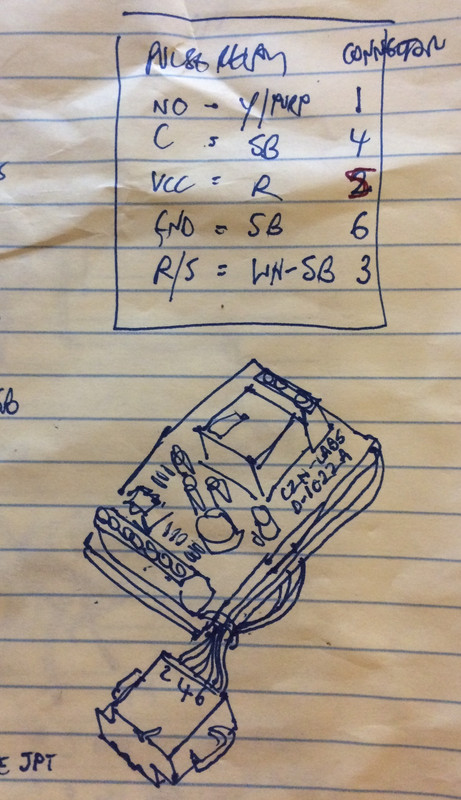 PULSE RELAY CONNECTION
NO - Y/PURP 1
C = SB 4
VCC = R
GND = SB 6
R/S = WH-SB 3
CZH-LABS
D-1022-A
2 4 6
E JPT